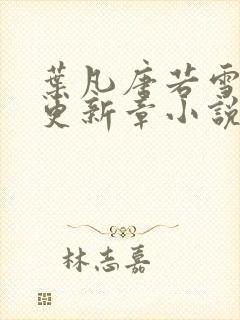 葉凡唐若雪
更新章小說
林志嘉